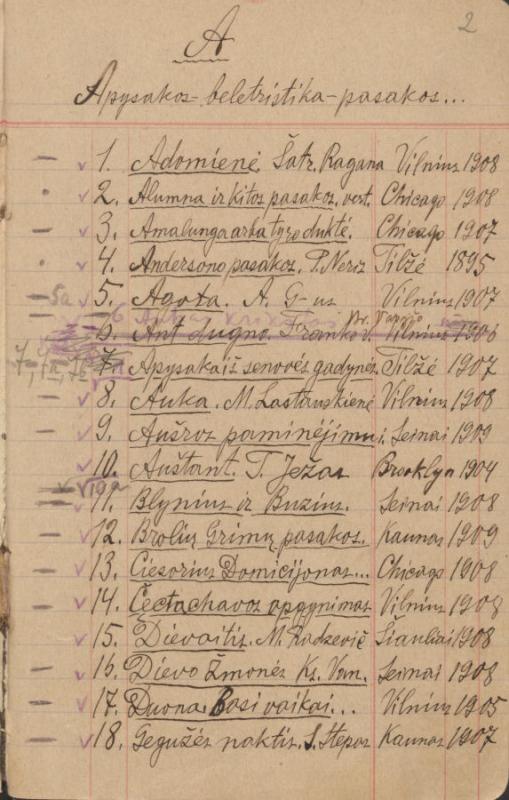 2
A
Apysakos-beletristika-pasakos...
1. Adomienė. Šatr. Ragana Vilnius 1908
2. Alumna ir kitos pasakos. vert. Chicago 1908
3. Amalunga arba tyrė duktė. Chicago 1907
4. Andersono pasakos. P. Neris Tilžė 1895
5a 5. Agota. A. G-us Vilnius 1907
6. Ant dugno. Franko v. Vilnius 1906
7. Apysaka iš senovės gadynės Tilžė 1907
8. Auka. M. Lastauskienė Vilnius 1908
9. Aušros paminėjimui. Seinai 1909
10. Auštant. T. Ježas Brooklyn 1904
10a
11. Blynius ir Buzius. Seinai 1908
12. Brolių Grimų pasakos. Kaunas 1909
13. Ciesorius Domicijonas... Chicago 1908
14. Čestachavos apgynimas Vilnius 1908
15. Dievaitis. M. Radzevič Šiauliai 1908
16. Dievo Žmonės Ks. Van. Seinai 1908
17. Duona. Basi vaikai... Vilnius 1905
18. Gegužės naktis. S. Stepas Kaunas 1907